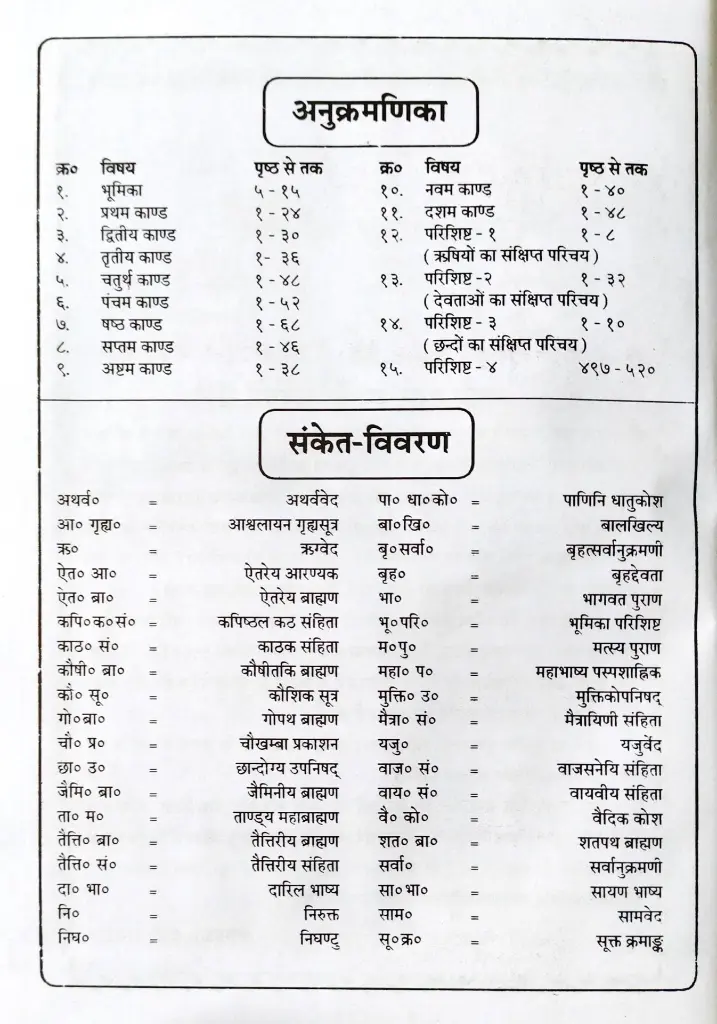 अनुक्रमणिका
क्र० विषय पृष्ठ से तक
१. भूमिका ५ - १५
२. प्रथम काण्ड १ - २४
३. द्वितीय काण्ड १ - ३०
४. तृतीय काण्ड १- ३६
५. चतुर्थ काण्ड १ - ४८
६. पंचम काण्ड १ - ५२
७. षष्ठ काण्ड १ - ६८
८. सप्तम काण्ड १ - ४६
९. अष्टम काण्ड १ - ३८
क्र० विषय पृष्ठ से तक
१०. नवम काण्ड १ - ४०
११. दशम काण्ड १ - ४८
१२. परिशिष्ट - १ १ - ८
( ऋषियों का संक्षिप्त परिचय )
१३. परिशिष्ट -२ १ - ३२
( देवताओं का संक्षिप्त परिचय )
१४. परिशिष्ट - ३ १ - १०
( छन्दों का संक्षिप्त परिचय )
१५. परिशिष्ट - ४ ४९७ - ५२०
संकेत-विवरण
अथर्व० = अथर्ववेद
आ० गृह्य० = आश्वलायन गृह्यसूत्र
ऋ० = ऋग्वेद
ऐत० आ० = ऐतरेय आरण्यक
ऐत० ब्रा० = ऐतरेय ब्राह्मण
कपि०क०सं० = कपिष्ठल कठ संहिता
काठ० सं० = काठक संहिता
कौषी० ब्रा० = कौषीतकि ब्राह्मण
कौ० सू० = कौशिक सूत्र
गो०ब्रा० = गोपथ ब्राह्मण
चौ० प्र० = चौखम्बा प्रकाशन
छा० उ० = छान्दोग्य उपनिषद्
जैमि० ब्रा० = जैमिनीय ब्राह्मण
ता० म० = ताण्ड्य महाब्राह्मण
तैत्ति० ब्रा० = तैत्तिरीय ब्राह्मण
तैत्ति० सं० = तैत्तिरीय संहिता
दा० भा० = दारिल भाष्य
नि० = निरुक्त
निघ० = निघण्टु
पा० धा०को० = पाणिनि धातुकोश
बा०खि० = बालखिल्य
बृ०सर्वा० = बृहत्सर्वानुक्रमणी
बृह० = बृहद्देवता
भा० = भागवत पुराण
भू०परि० = भूमिका परिशिष्ट
म०पु० = मत्स्य पुराण
महा० प० = महाभाष्य पस्पशाह्निक
मुक्ति० उ० = मुक्तिकोपनिषद्
मैत्रा० सं० = मैत्रायिणी संहिता
यजु० = यजुर्वेद
वाज० सं० = वाजसनेयि संहिता
वाय० सं० = वायवीय संहिता
वै० को० = वैदिक कोश
शत० ब्रा० = शतपथ ब्राह्मण
सर्वा० = सर्वानुक्रमणी
सा०भा० = सायण भाष्य
साम० = सामवेद
सू०क्र० = सूक्त क्रमाङ्क